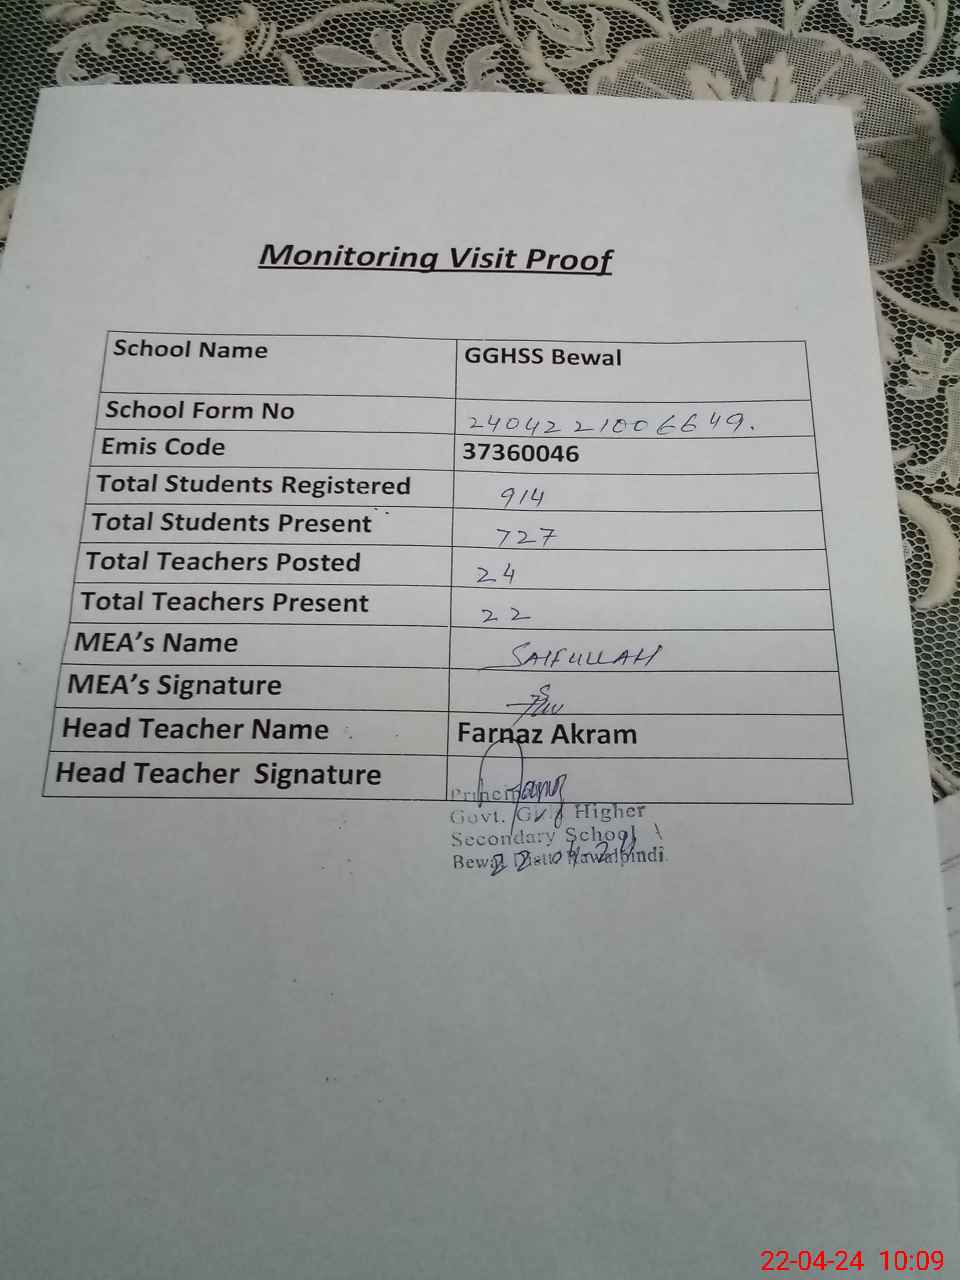 Monitoring Visit Proof
School Name GGHSS Bewal
School Form No 2404221006649.
Emis Code 37360046
Total Students Registered 914
Total Students Present 727
Total Teachers Posted 24
Total Teachers Present 22
MEA's Name SAIFULLAH
MEA's Signature
Head Teacher Name Farnaz Akram
Head Teacher Signature
Govt. Girls Higher
Secondary School
Bewal Distt Rawalpindi.
22-04-24 10:09